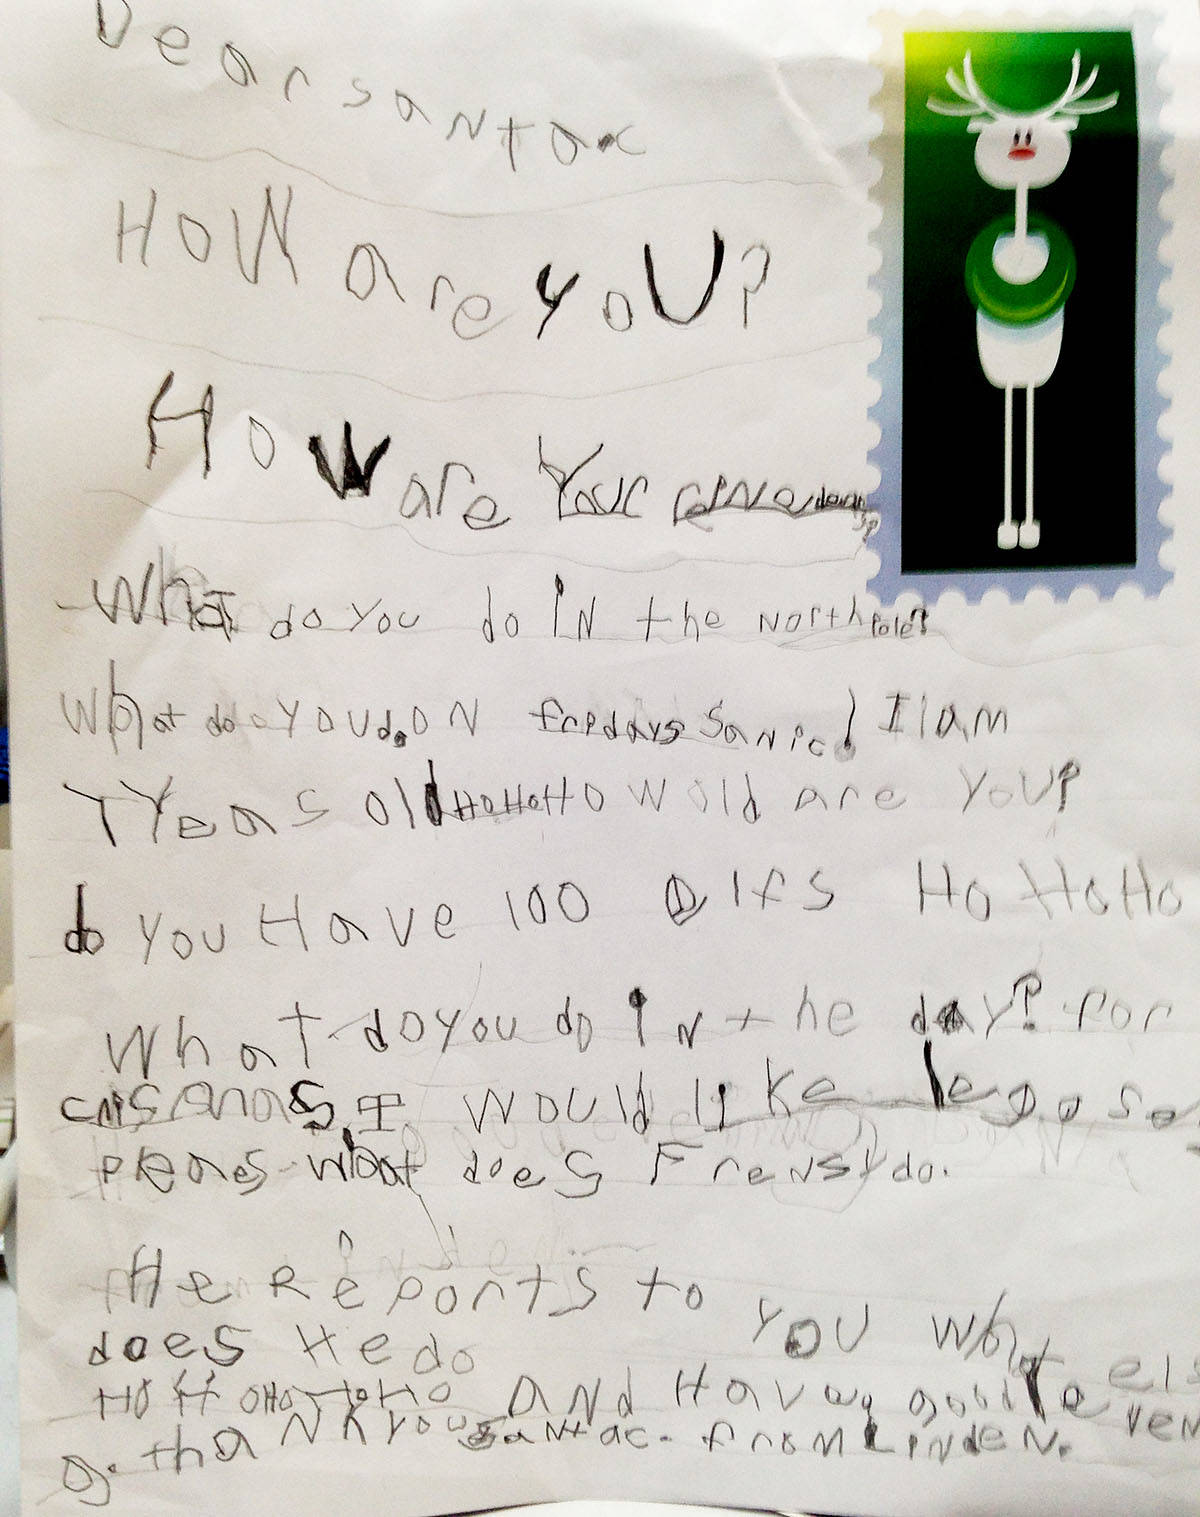 Dear santac
How are you?
How are Your reinedeers?
What do you do in the north pole?
What do you do on fridays Santc! I am
7 Years old HoHoHo How old are you?
do you Have 100 elfs Ho HoHo
What do you do in the day? for
crisamas I would like legos
pleaes what does Frensy do.
He Reports to you what els
does He do
HoHoHoHoHo and Have a good
thank you Santac. from Linden.